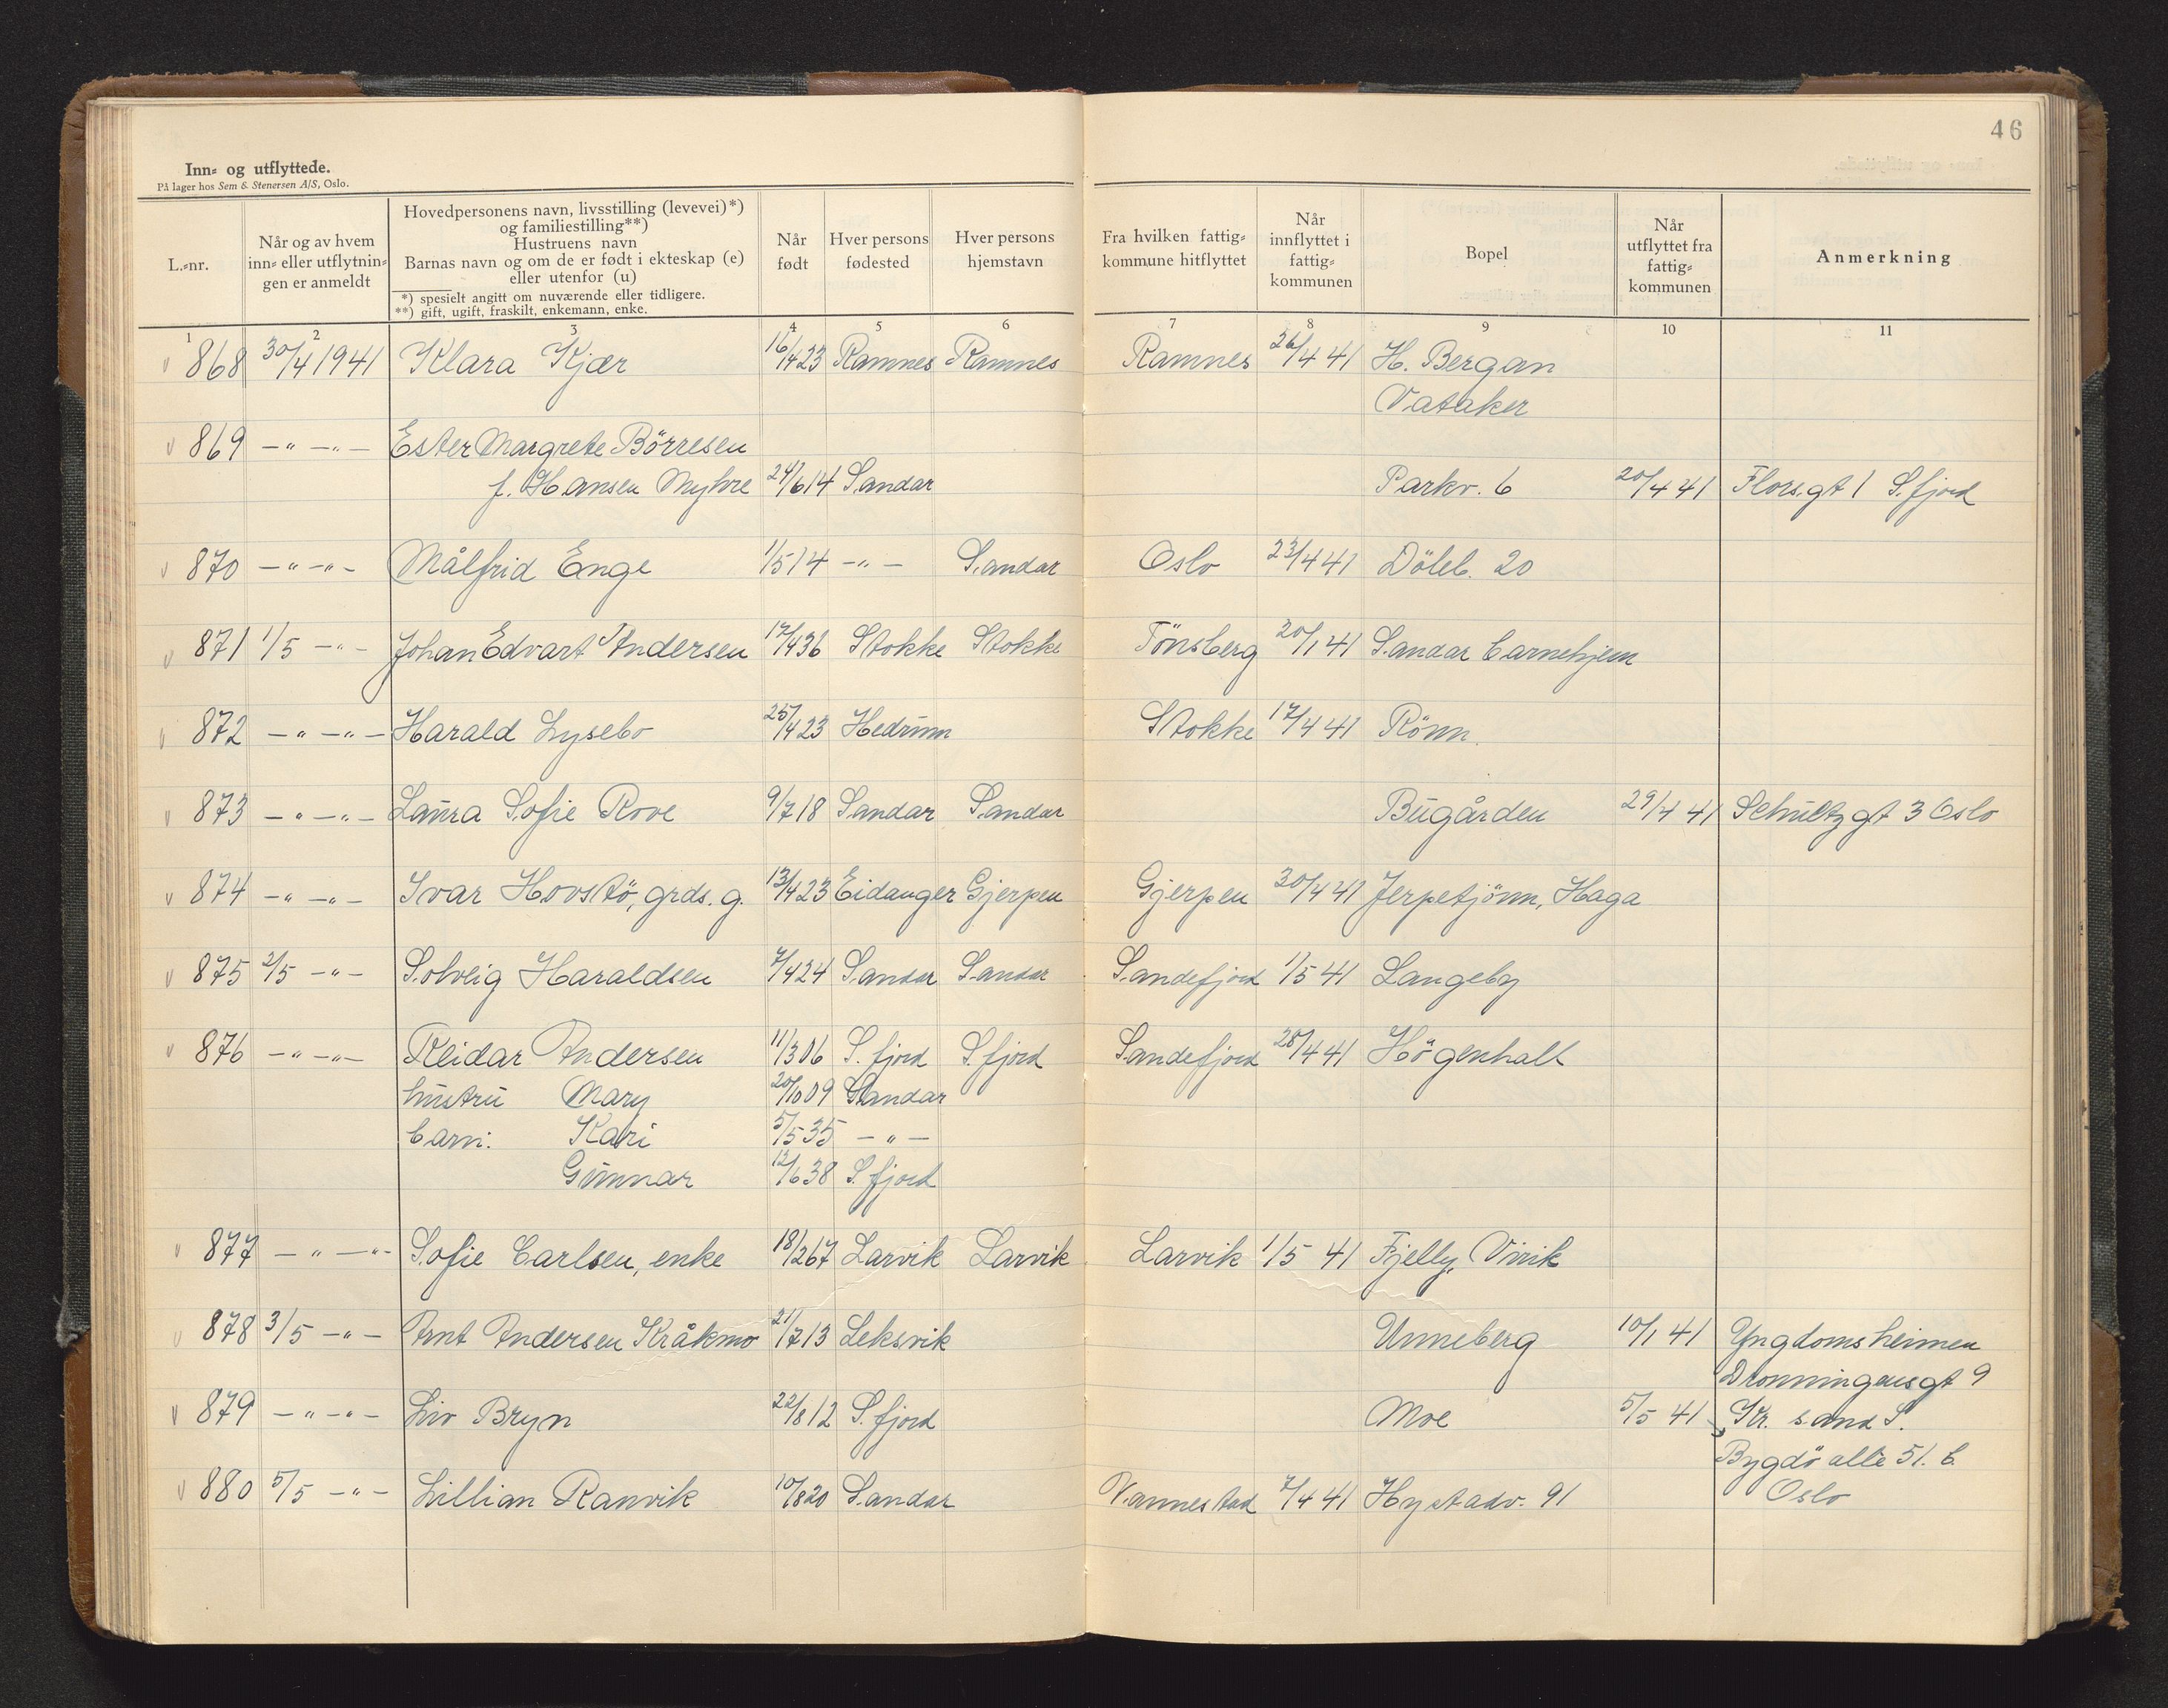 46
Inn- og utflyttede.
På lager hos Sem & Stenersen A/S, Oslo.
L.-nr.
Når og av hvem
inn- eller utflytnin-
gen er anmeldt
Hovedpersonens navn, livsstilling (levevei)*)
og familiestilling**)
Hustruens navn
Barnas navn og om de er født i ekteskap (e)
eller utenfor (u)
*) spesielt angitt om nuværende eller tidligere.
**) gift, ugift, fraskilt, enkemann, enke.
Når
født
Hver persons
fødested
Hver persons
hjemstavn
Fra hvilken fattig-
kommune hitflyttet
Når
innflyttet i
fattig-
kommunen
Bopel
Når
utflyttet fra
fattig-
kommunen
Anmerkning
1 2 3 4 5 6 7 8 9 10 11
868 30/4 1941 Klara Kjær 16/4 23 Ramnes Ramnes Ramnes 26/4 41 H. Bergan
Vataker
869 -"- -"- Ester Margrete Börresen
f. Hansen Myhre 24/6 14 Sandar Parkv. 6 20/4 41 Flors.gt 1 S.fjord
870 -"- -"- Målfrid Enge 1/5 14 -"- Sandar Oslo 23/4 41 Döleb. 20
871 1/5 -"- Johan Edvart Andersen 17/4 36 Stokke Stokke Tönsberg 20/1 41 Sandar barnehjem
872 -"- -"- Harald Lysebo 25/4 23 Hedrum Stokke 17/4 41 Rönn
873 -"- -"- Laura Sofie Rove 9/7 18 Sandar Sandar Bugården 29/4 41 Schultzgt 3 Oslo
874 -"- -"- Ivar Hovstö, grds. g. 13/4 23 Eidanger Gjerpen Gjerpen 30/4 41 Jerpetjönn, Haga
875 2/5 -"- Solveig Haraldsen 7/4 24 Sandar Sandar Sandefjord 1/5 41 Langeby
876 -"- -"- Reidar Andersen 11/3 06 S.fjord S.fjord Sandefjord 28/4 41 Högenhall
hustru Mary 20/10 09 Sandar
barn: Kari 5/5 35 -"-
Gunnar 12/6 38 S.fjord
877 -"- -"- Sofie Carlsen, enke 18/2 67 Larvik Larvik Larvik 1/5 41 Fjelly, Virik
878 3/5 -"- Arnt Andersen Kråkmo 21/7 13 Leksvik Unneberg 10/1 41 Yngdomsheimen
Dronningensgt 9
879 -"- -"- Liv Bryn 22/8 12 S.fjord Moe 5/5 41 Kr. sand S.
Bygdö alle 51. b
880 5/5 -"- Lillian Ranvik 10/8 20 Sandar Vannestad 7/4 41 Hystadv. 91 Oslo